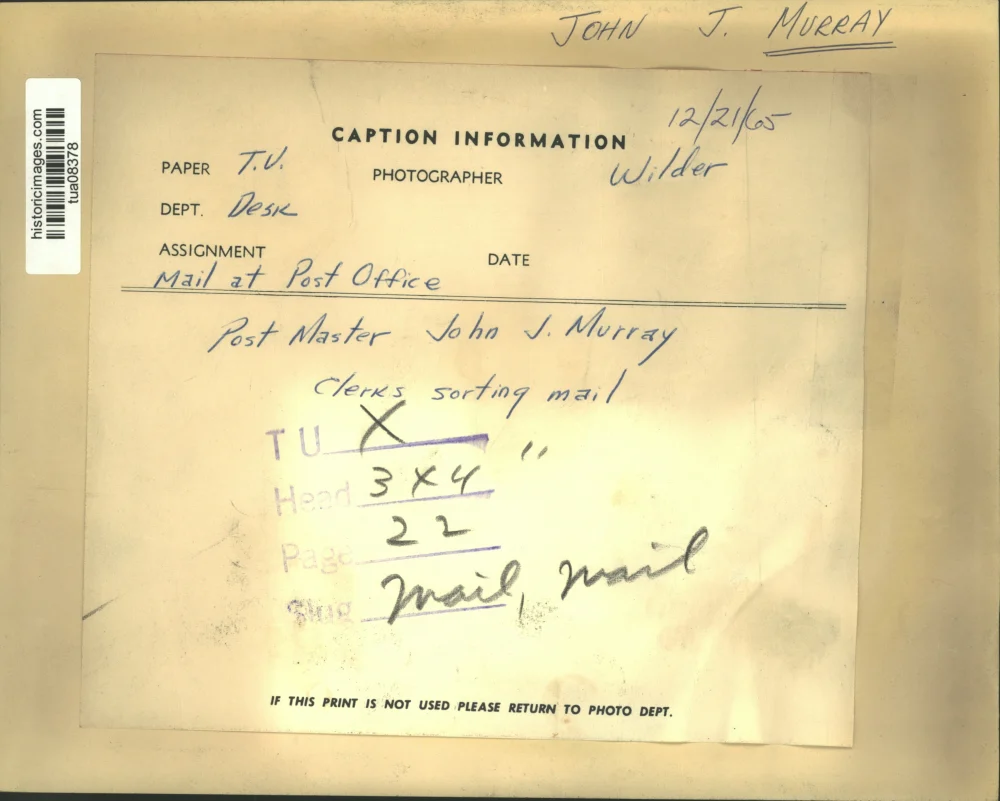 JOHN J. MURRAY
historicimages.com
tua08378
12/21/65
CAPTION INFORMATION
PAPER T.U. PHOTOGRAPHER Wilder
DEPT. Desk
ASSIGNMENT DATE
Mail at Post Office
Post Master John J. Murray
Clerks sorting mail
TU X "
Head 3 x 4
Page 22
Slug Mail, mail
IF THIS PRINT IS NOT USED PLEASE RETURN TO PHOTO DEPT.